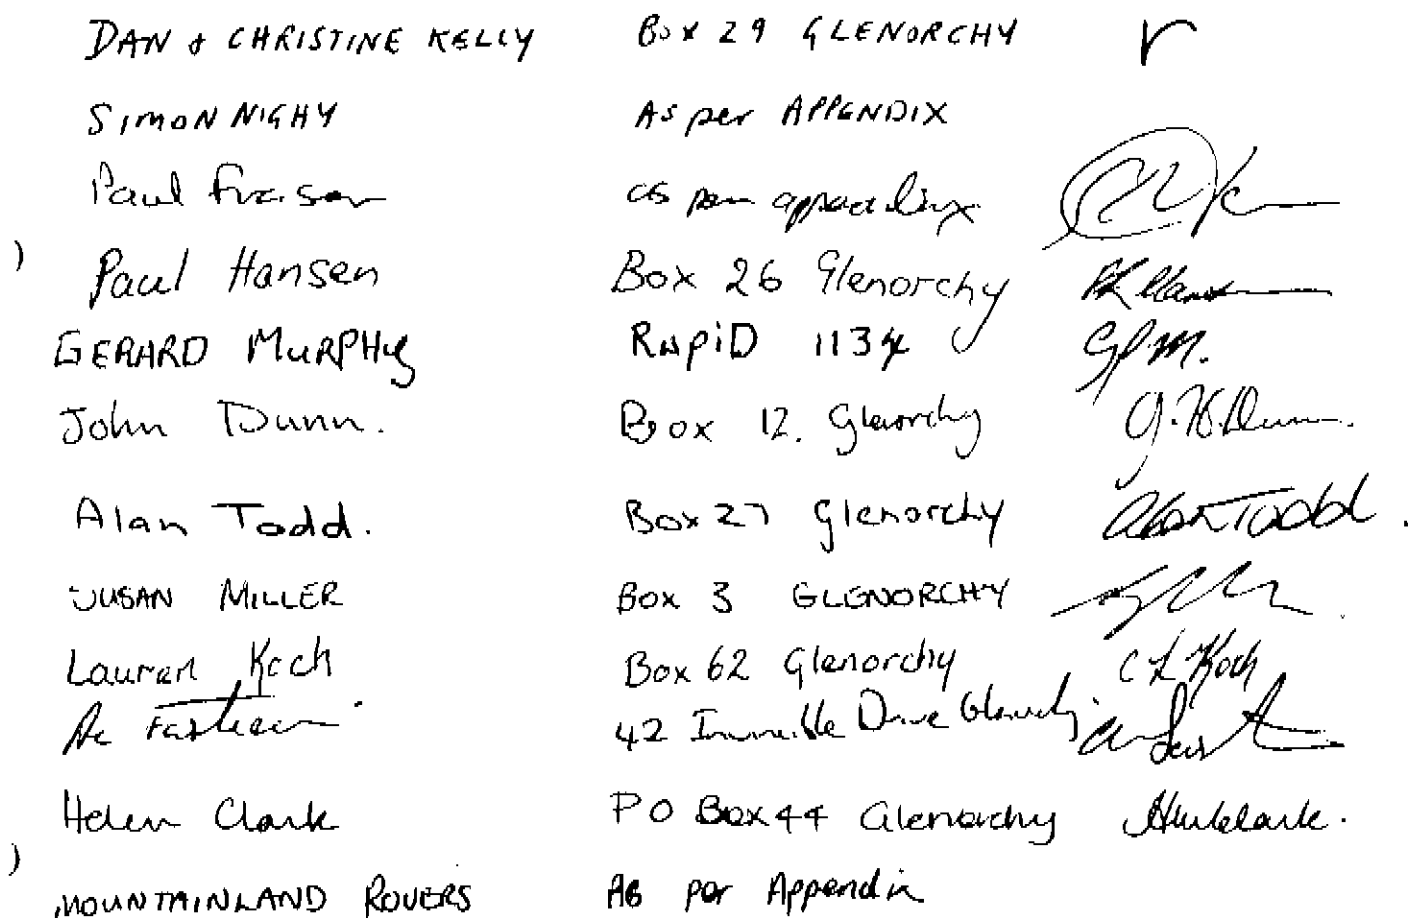 DAN & CHRISTINE KELLY Box 29 GLENORCHY
SIMON NIGHY As per APPENDIX
Paul Fraser as per appendix
Paul Hansen Box 26 Glenorchy
GERARD MURPHY RAPID 1134 GPM.
John Dunn. Box 12. Glenorchy J.H.Dunn.
Alan Todd. Box 27 Glenorchy Alan Todd.
SUSAN MILLER Box 3 GLENORCHY
Lauren Koch Box 62 Glenorchy C L Koch
42 Invincible Drive Glenorchy.
Helen Clark PO Box 44 Glenorchy
MOUNTAINLAND ROVERS As per Appendix